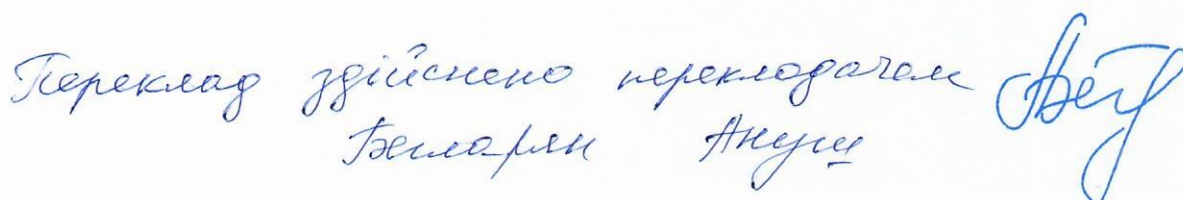 Переклад здійснено перекладачем
Бегларян Ануш